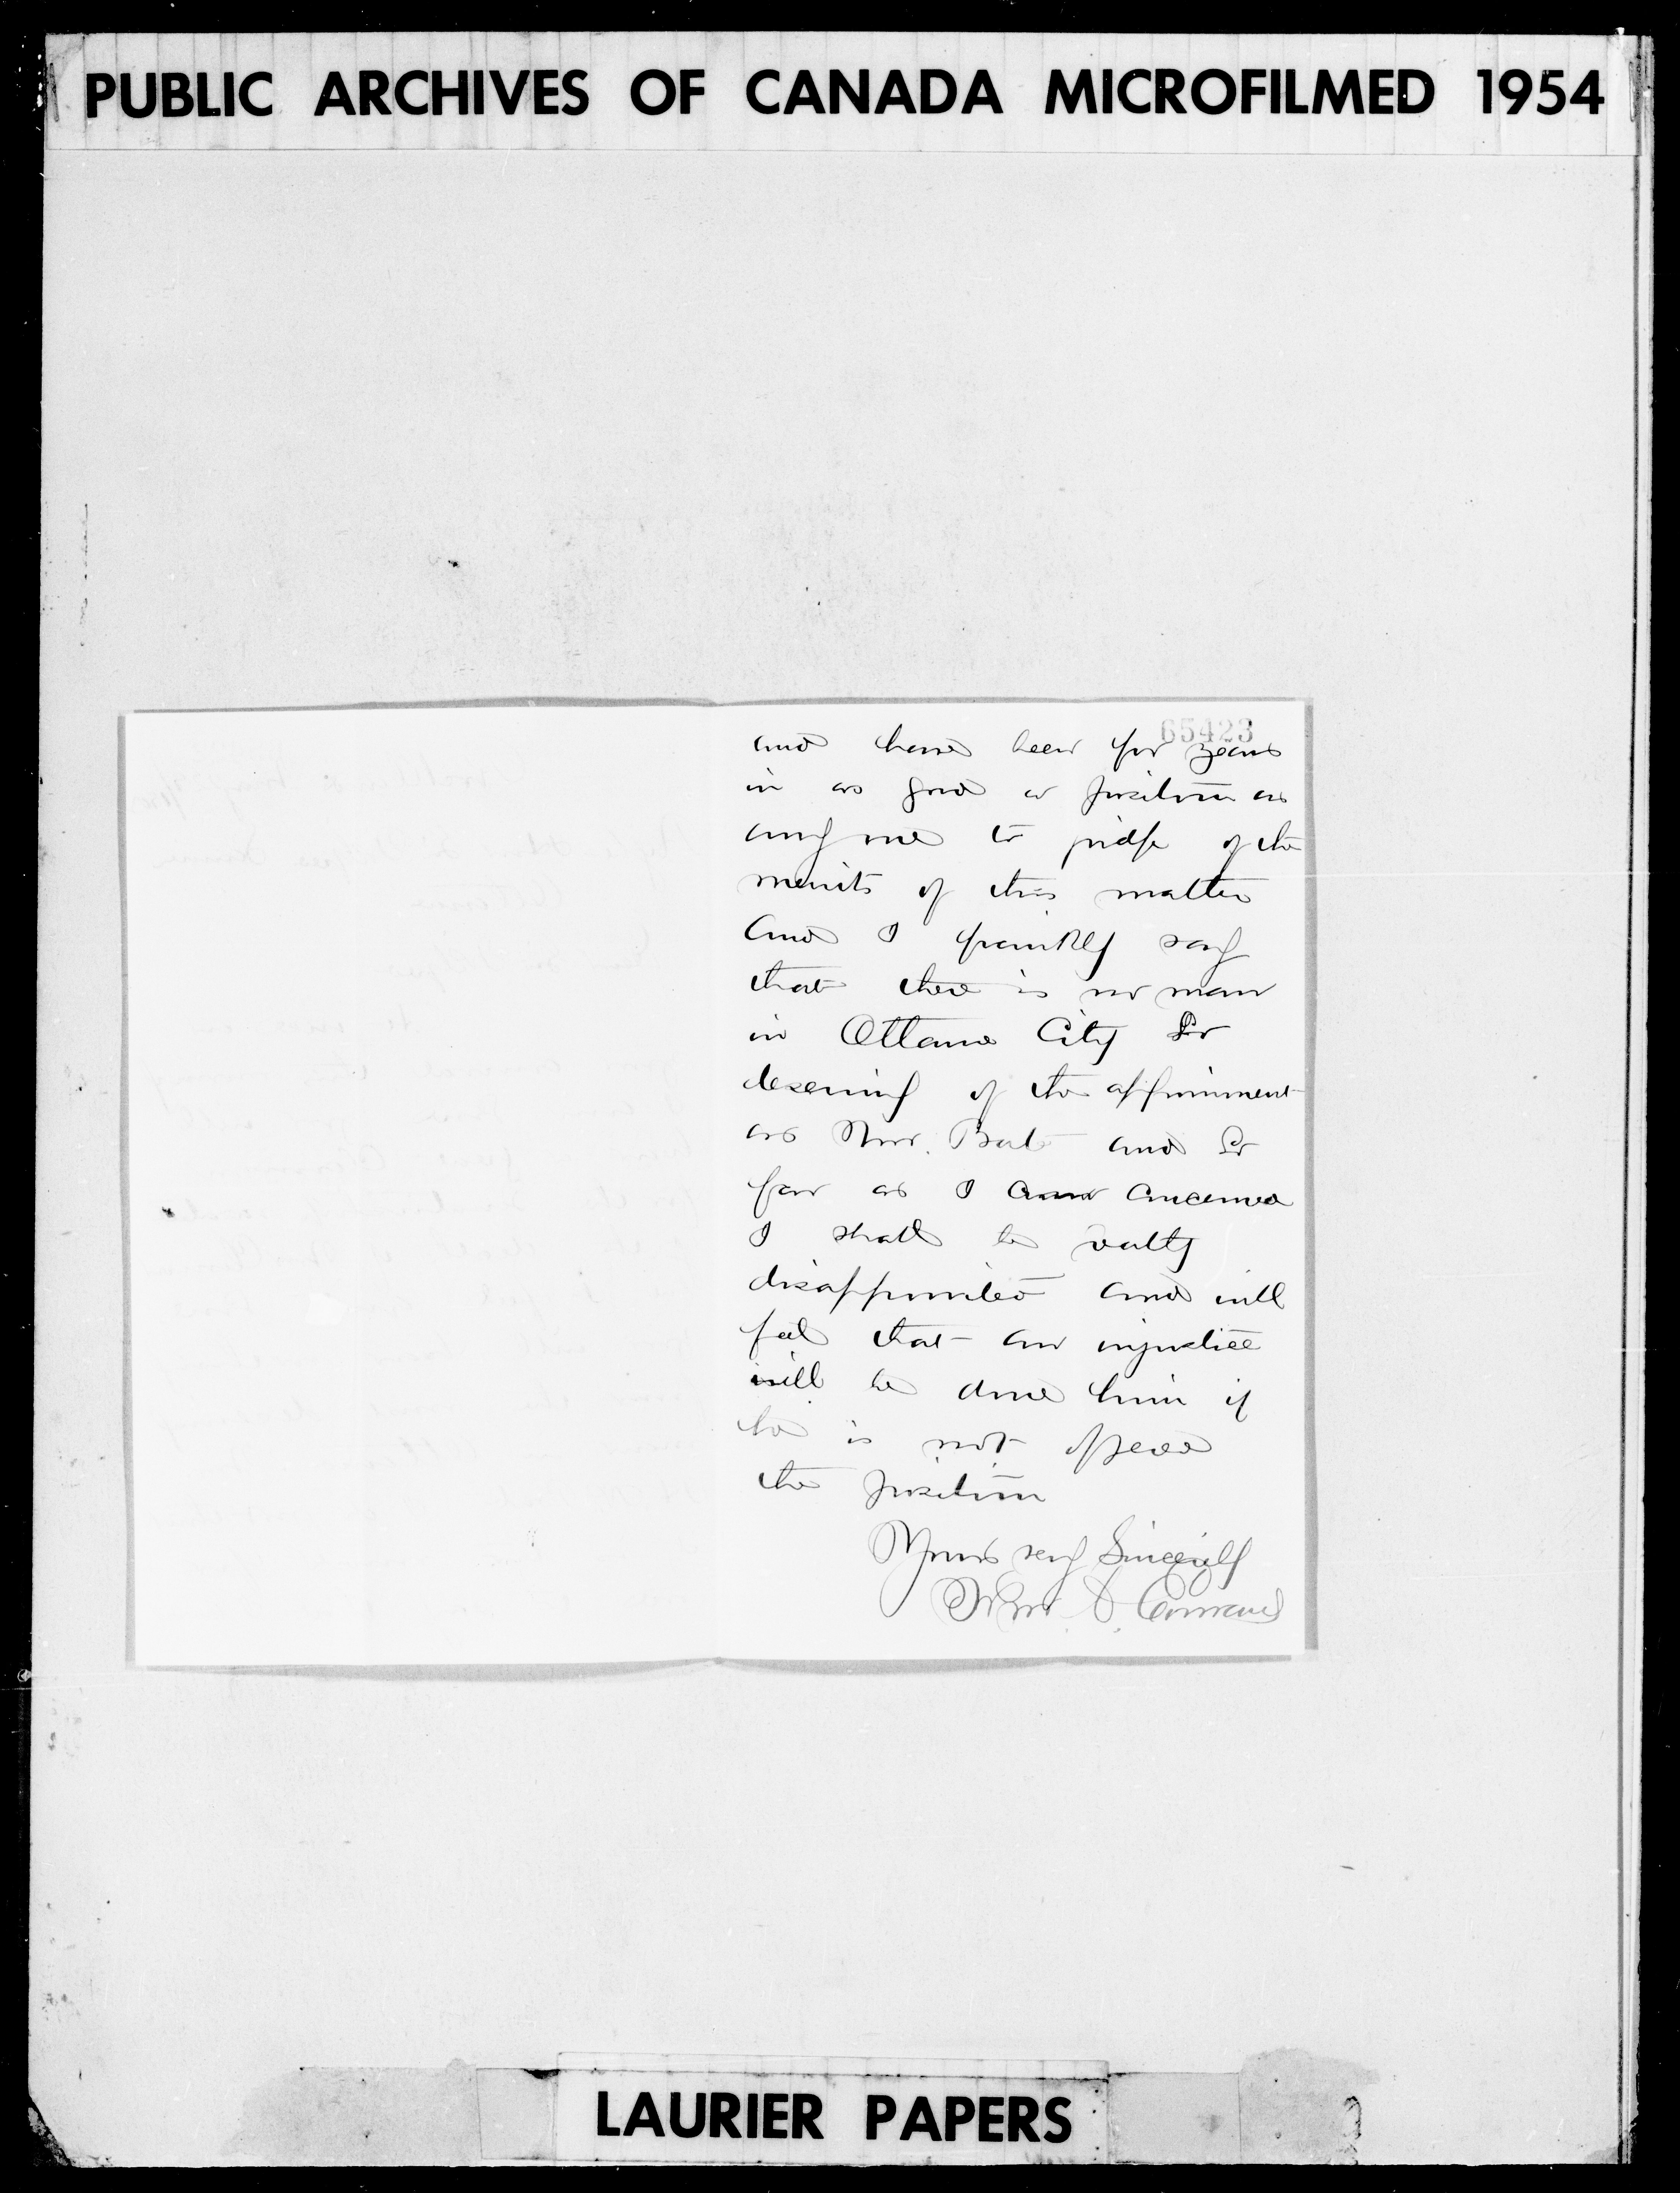 PUBLIC ARCHIVES OF CANADA MICROFILMED 1954
65423
and have been for years
in as good a position as
any one to judge of the
merits of this matter
and I frankly say
that there is no man
in Ottawa City so
deserving of the appointment
as Mr. Bate and so
far as I am concerned
I shall be vastly
disappointed and will
feel that an injustice
will be done him if
he is not offered
the position
Yours very Sincerely
Wm.
LAURIER PAPERS